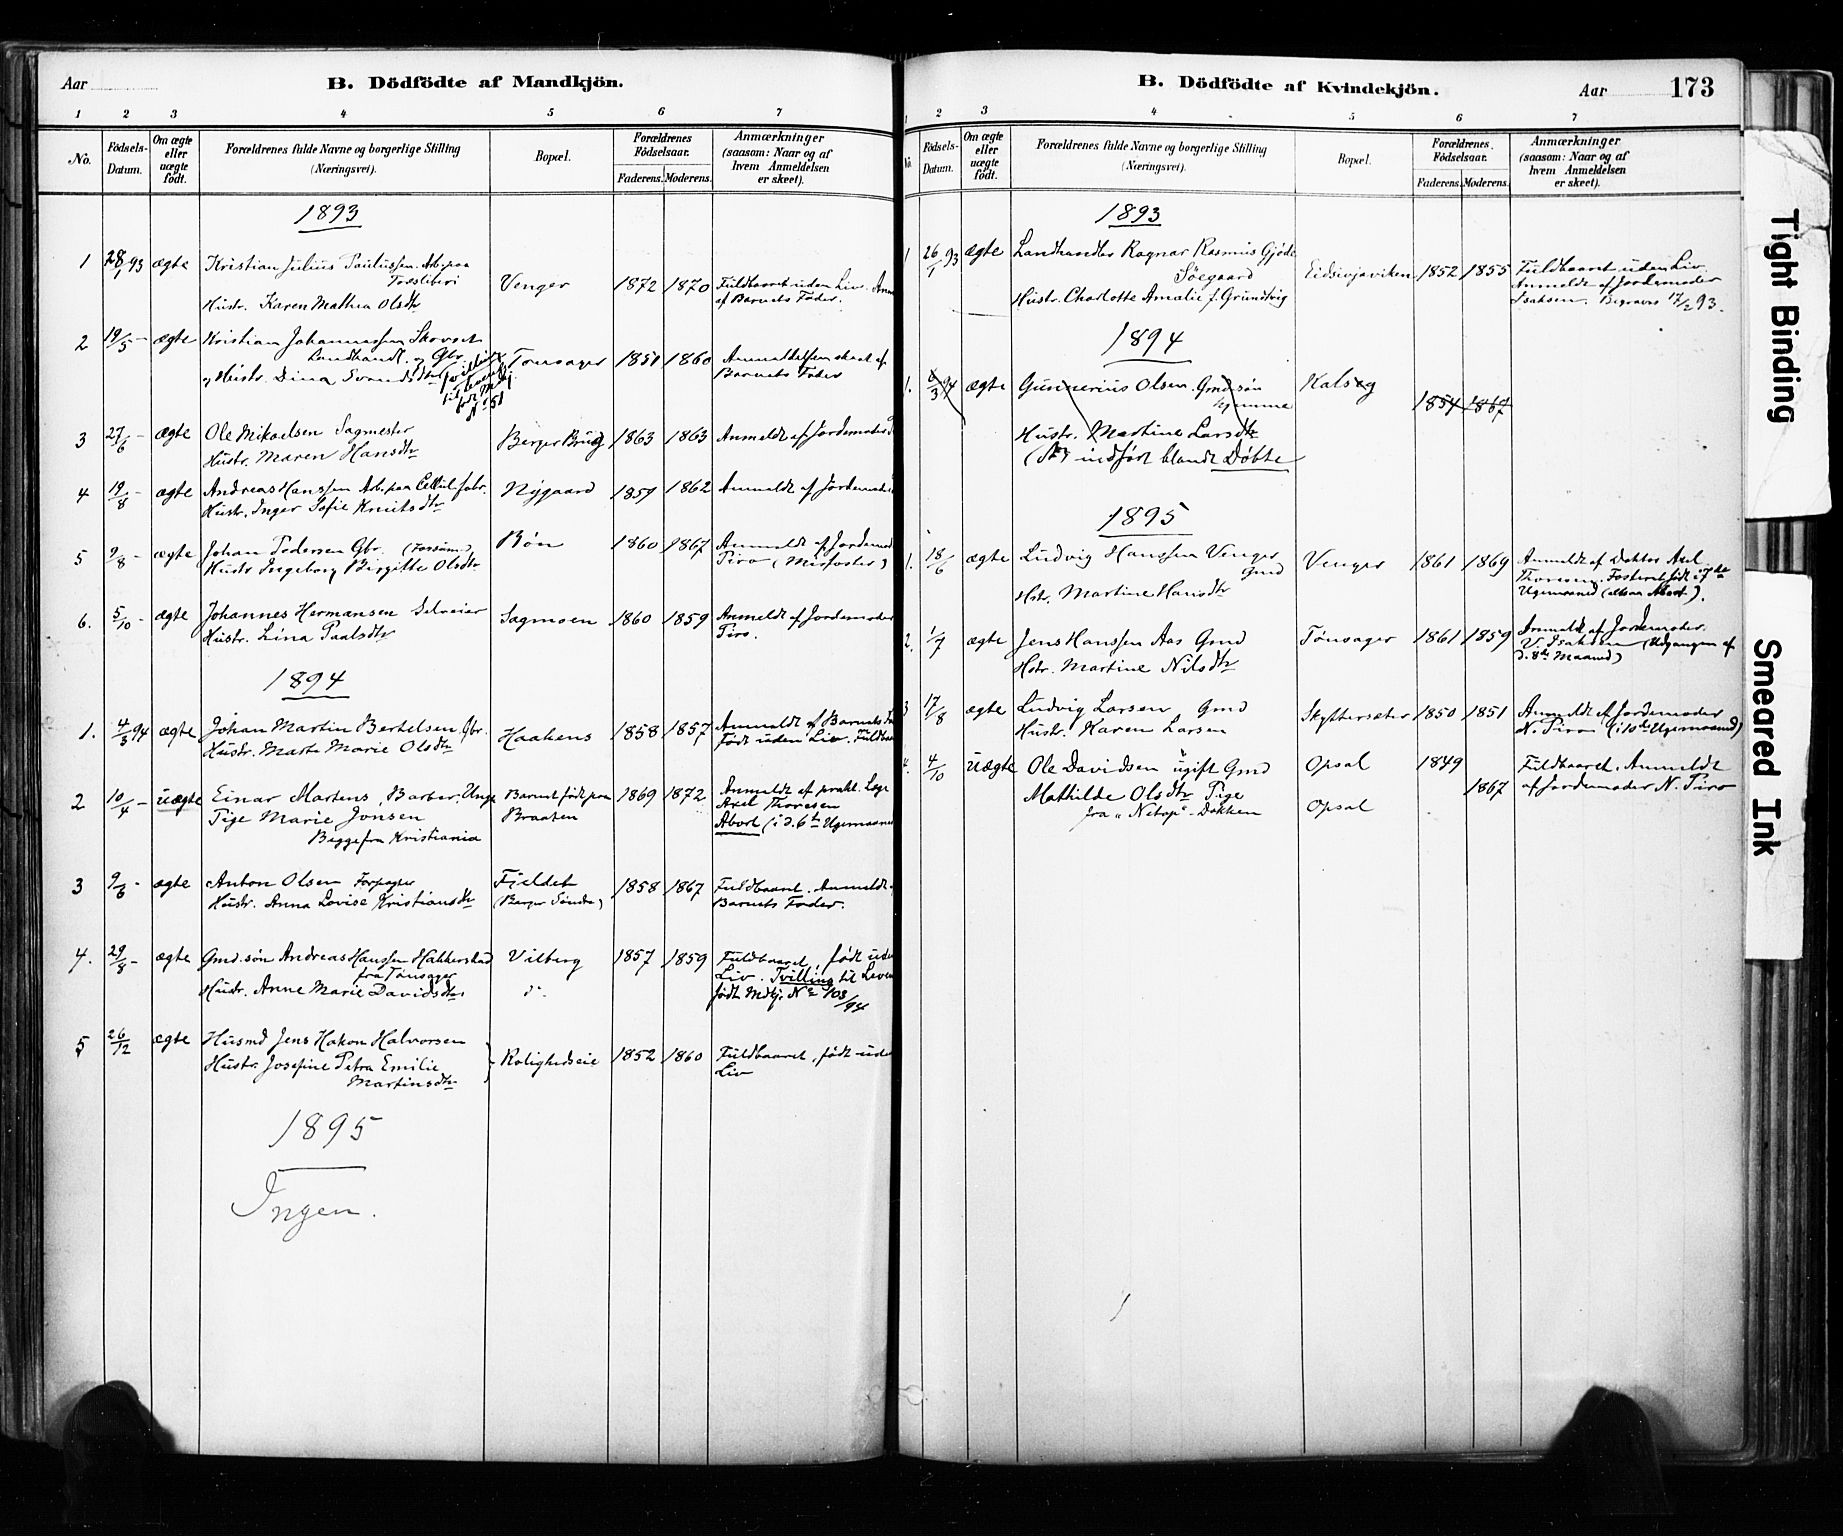 Aar
B. Dödfödte af Mandkjön.
1 2 3 4 5 6 7
No.
Födsels-Datum.
Om ægte eller uægte födt.
Forældrenes fulde Navne og borgerlige Stilling
(Næringsvei).
Bopæl.
Forældrenes Födselsaar.
Faderens. Moderens.
Anmærkninger
(saasom: Naar og af
hvem Anmeldelsen
er skeet).
1893
1 28/1 93 ægte Kristian Julius Paulussen Arb. paa
Hustr. Karen Mathea Olsdtr Venger 1872 1870 Fuldbaaret uden Liv.
af Barnets Fader.
2 19/5 - ægte Kristian Johannessen
Landhandl. og Gbr.
og Hustr. Dina Svendsdtr Tønsager 1851 1860 Anmeldelsen skeet af
Barnets Fader
3 27/6 - ægte Ole Mikaelsen Sagmester
Hustr. Maren Hansdtr Berger Brug 1863 1863 Anmeldt af Jordemoder
4 19/8 - ægte Andreas Hanssen Arb. paa Cellul.fabr.
Hustr. Inger Sofie Knutsdtr Nygaard 1859 1862 Anmeldt af Jordemoder
5 9/8 - ægte Johan Pedersen Gbr.
Hustr Ingeborg Birgitte Olsdtr Bøn 1860 1867 Anmeldt af Jordemod
Tiro (Misfoster)
6. 5/10 - ægte Johannes Hermansen
Hustr. Lina Paalsdtr Sagmoen 1860 1859 Anmeldt af Jordemoder
Tiro.
1894
1. 4/3 94 ægte Johan Martin Bertelsen Gbr.
Hustr. Marte Marie Olsdtr Haakens 1858 1857 Anmeldt af Barnets
Født uden Liv.
2 10/4 - uægte Einar Martens, Barber, Ungk
Pige Marie Jonsen
Begge fra Kristiania
Barnet født paa
Braaten 1869 1872 Anmeldt af prakt. Læge
Axel Thoresen
Abort (i d. 6te Ugemaaned
3 9/6 - ægte Anton Olsen Forpagter
Hustr. Anna Lovise Kristiansdtr Fjeldet
(Berger Søndre) 1858 1867 Fuldbaaret. Anmeldt
Barnets Fader.
4. 29/8 - ægte Gmd.søn Andreas Hanssen Hakkerstad
fra Tønsager
Hustr. Anne Marie Davidsdtr Vilberg 1857 1859 Fuldbaaret, født uden
Liv. Tvilling til Levende
født Mdkj. No 103/94
5 26/12 ægte Husmd Jens Hakon Halvorsen
Hustr. Josefine Petra Emilie
Martinsdtr Rolighedseie 1852 1860 Fuldbaaret, født uden
Liv
1895
Ingen.
B. Dödfödte af Kvindekjön.
Aar 173
1 2 3 4 5 6 7
No.
Födsels-Datum.
Om ægte eller uægte födt.
Forældrenes fulde Navne og borgerlige Stilling
(Næringsvei).
Bopæl.
Forældrenes Födselsaar.
Faderens. Moderens.
Anmærkninger
(saasom: Naar og af
hvem Anmeldelsen
er skeet).
1893
1 26/1 93 ægte Landhandler Ragnar Rasmus Gjøde
Söegaard
Hustr. Charlotte Amalie f. Grundvig Eidsivjaviken 1852 1855 Fuldbaaret uden Liv.
Anmeldt af Jordemoder
Isaksen. Begravet 17/2 93.
1894
1. 6/3 94 ægte Gunnerius Olsen Gmd.søn
hjemme
Hustr. Martine Larsdtr Kalseg 1854 1867
indført blandt Døbte
1895
1. 18/6 ægte Ludvig Hanssen Venger
Gmd
Hstr. Martine Hansdtr Venger 1861 1869 Anmeldt af Doktor Axel
Thoresen. Fosteret født i 7de
Ugemaaned (altsaa Abort).
2. 1/7 ægte Jens Hanssen Aas Gmd
Hstr. Martine Nilsdtr Tønsager 1861 1859 Anmeldt af Jordemoder
V. Isaksen (Udgangen af
d. 8de Maaned)
3 17/8 ægte Ludvig Larsen Gmd
Hustr. Karen Larsen Skyttersæter 1850 1851 Anmeldt af Jordemoder
N. Tiro (i 10de Ugemaaned)
4. 4/10 uægte Ole Davidsen ugift Gmd Opsal 1849
Mathilde Olsdtr Pige
fra "Netop"-Dokken Opsal 1867 Fuldbaaret. Anmeldt
af Jordemoder N. Tiro
Tight Binding
Smeared Ink